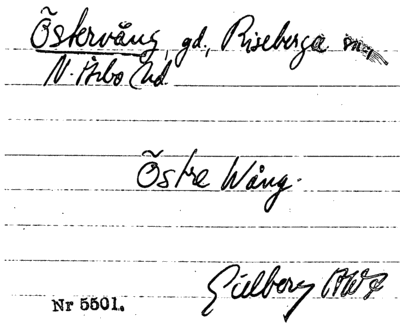 Östervång, gd., Riseberga sn,
N. Åsbo hd.
Östre Wång.
Gillberg
Nr 5501.